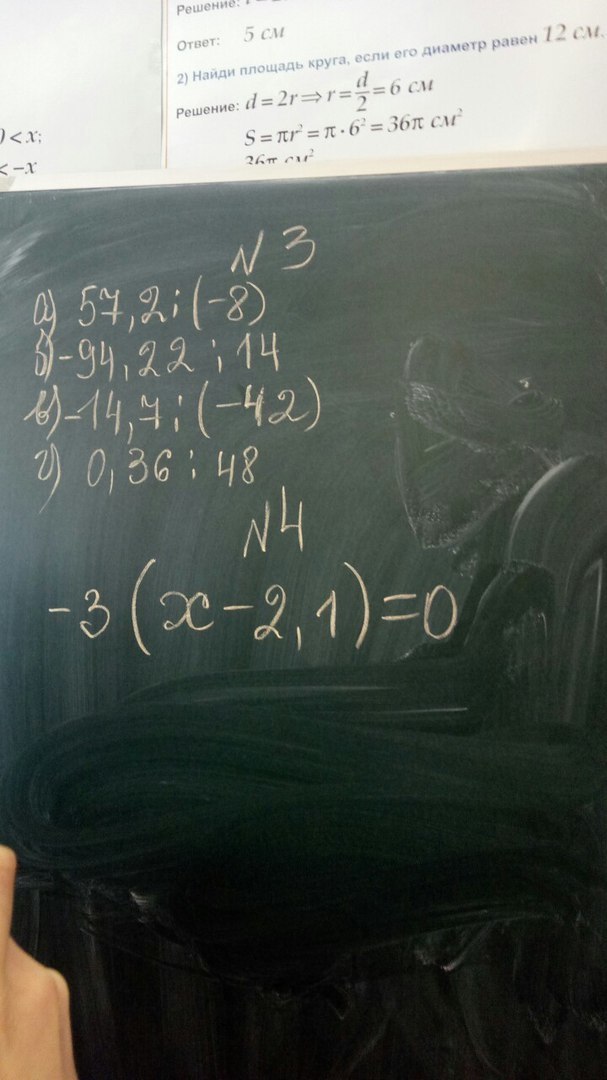 Решение:
Ответ: 5 см
2) Найди площадь круга, если его диаметр равен 12 см.
Решение: d = 2r ⇒ r = d/2 = 6 см
S = πr² = π · 6² = 36π см²
36π см²
0 < x;
< -x
N 3
а) 57,2 : (-8)
б) -94,22 : 14
в) -14,7 : (-42)
г) 0,36 : 48
N 4
-3 (x - 2,1) = 0